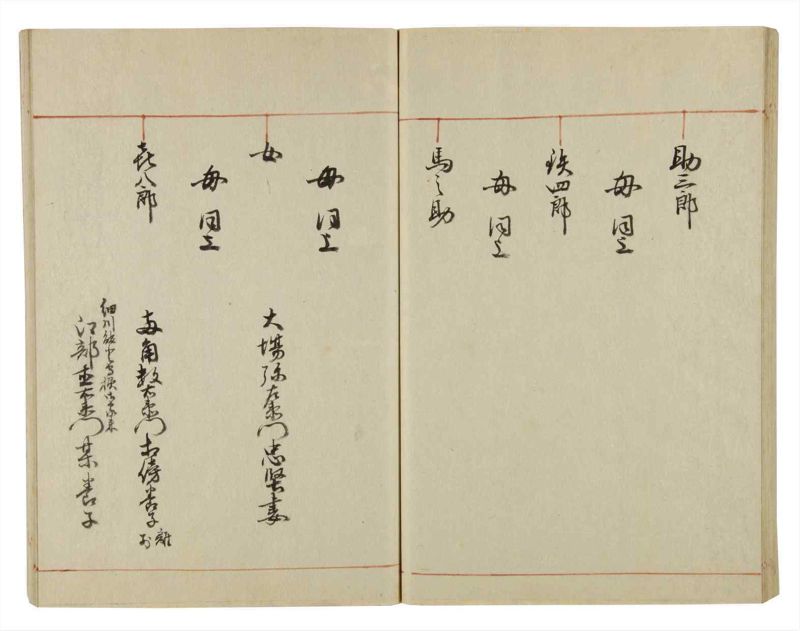 助三郎
母同上
鉄四郎
母同上
馬之助
母同上
女
大場弥左衛門忠賢妻
母同上
喜八郎
角数右衛門養子離別
細川様御家来
江部右衛門某養子